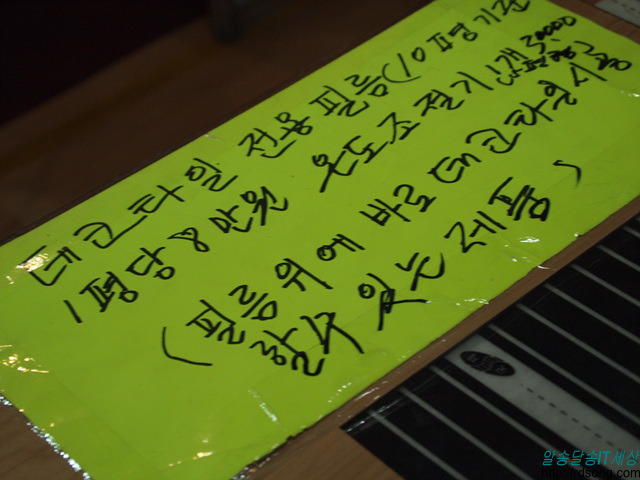 데코타일 전용필름 (10평기준
1평당 8만원 온도조절기 1개 30,000
(필름위에 바로 데코타일시공
할수 있는 제품)
알송달송IT세상